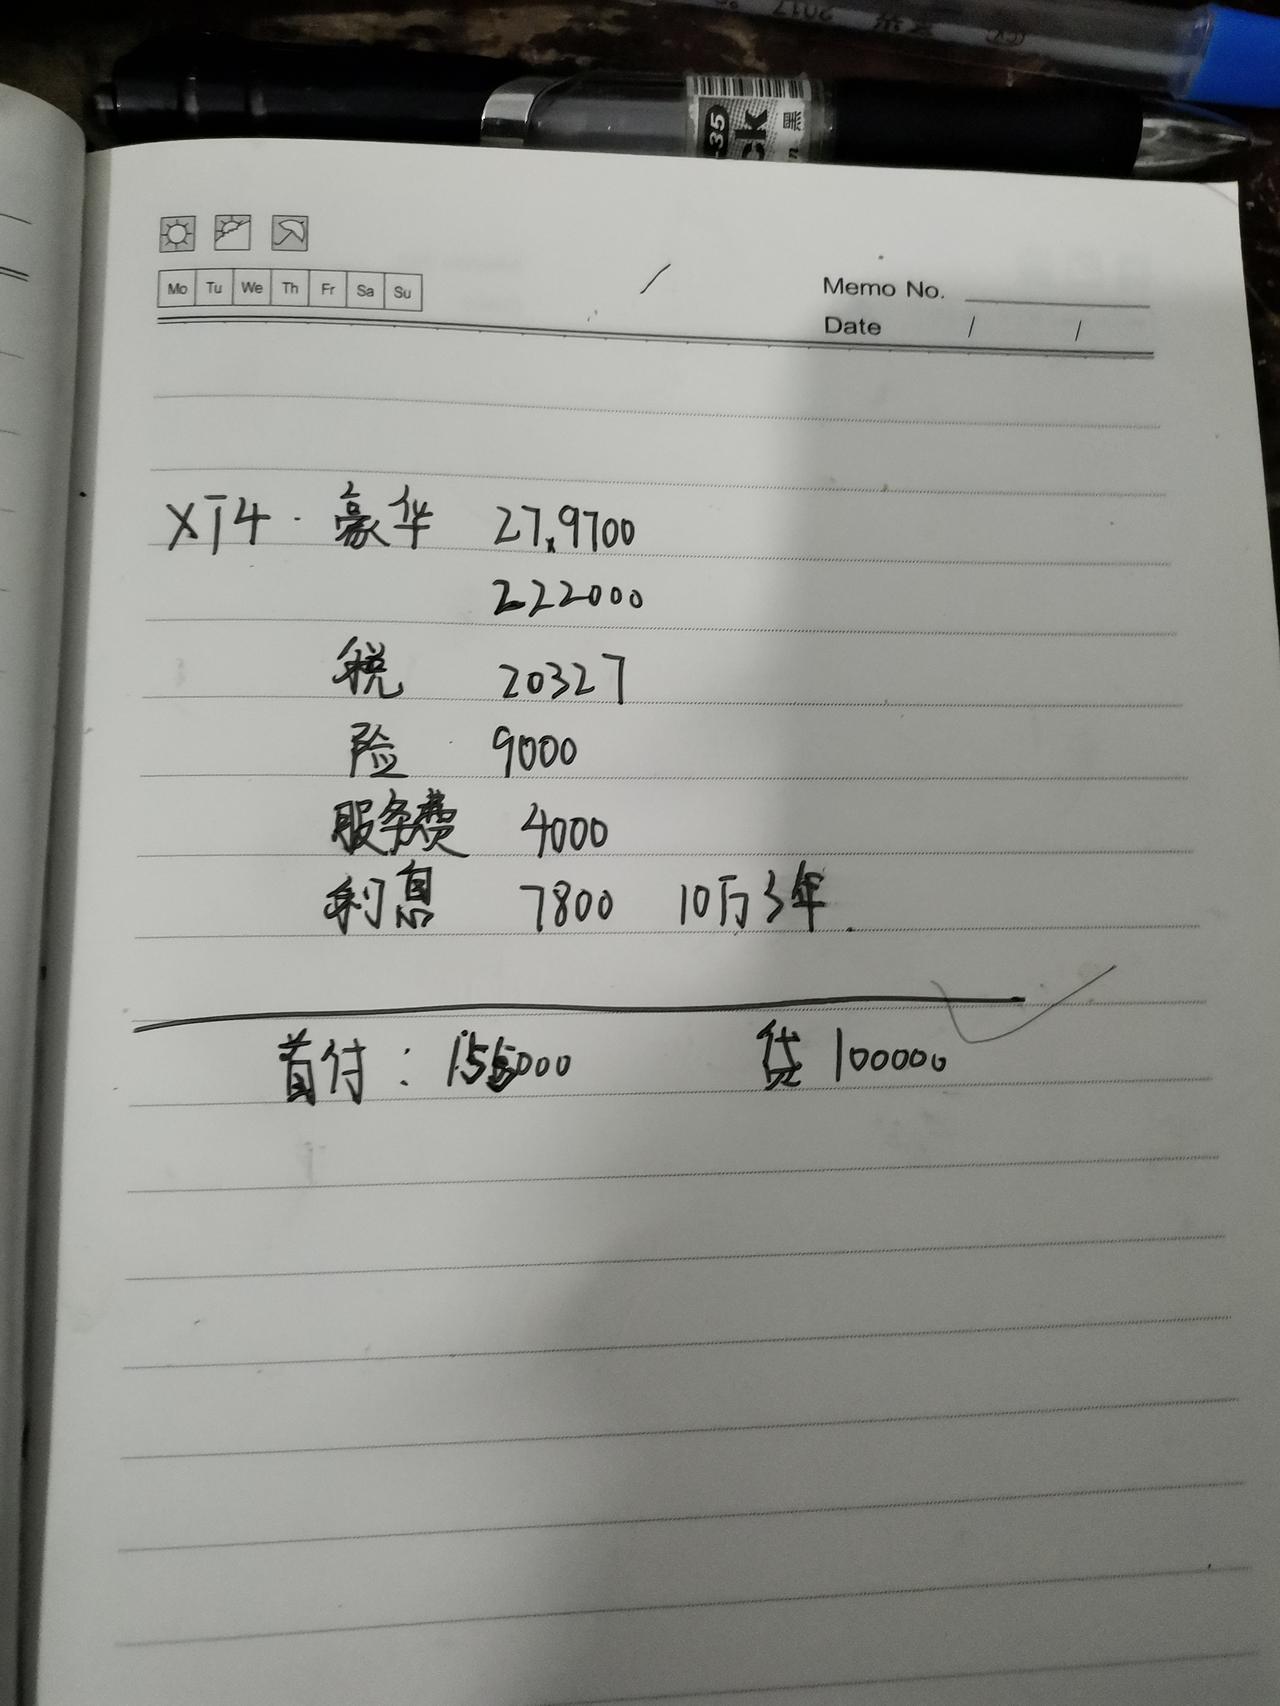 2017
-35
CK
黑
Mo Tu We Th Fr Sa Su
Memo No.
Date / /
XT4 · 豪华 27.9700
222000
税 20327
险 9000
服务费 4000
利息 7800 10万3年.
首付: 155000 贷 100000